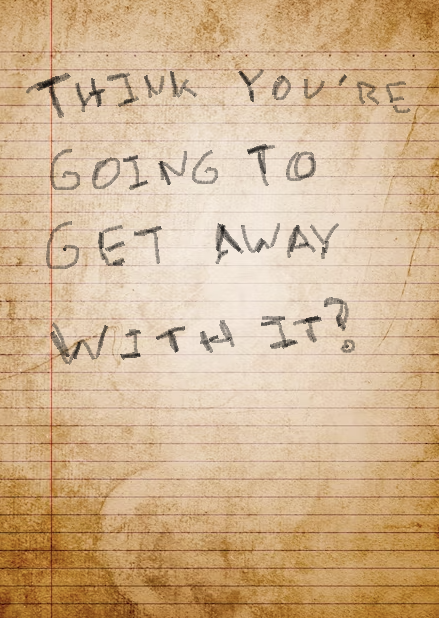 THINK YOU'RE
GOING TO
GET AWAY
WITH IT?